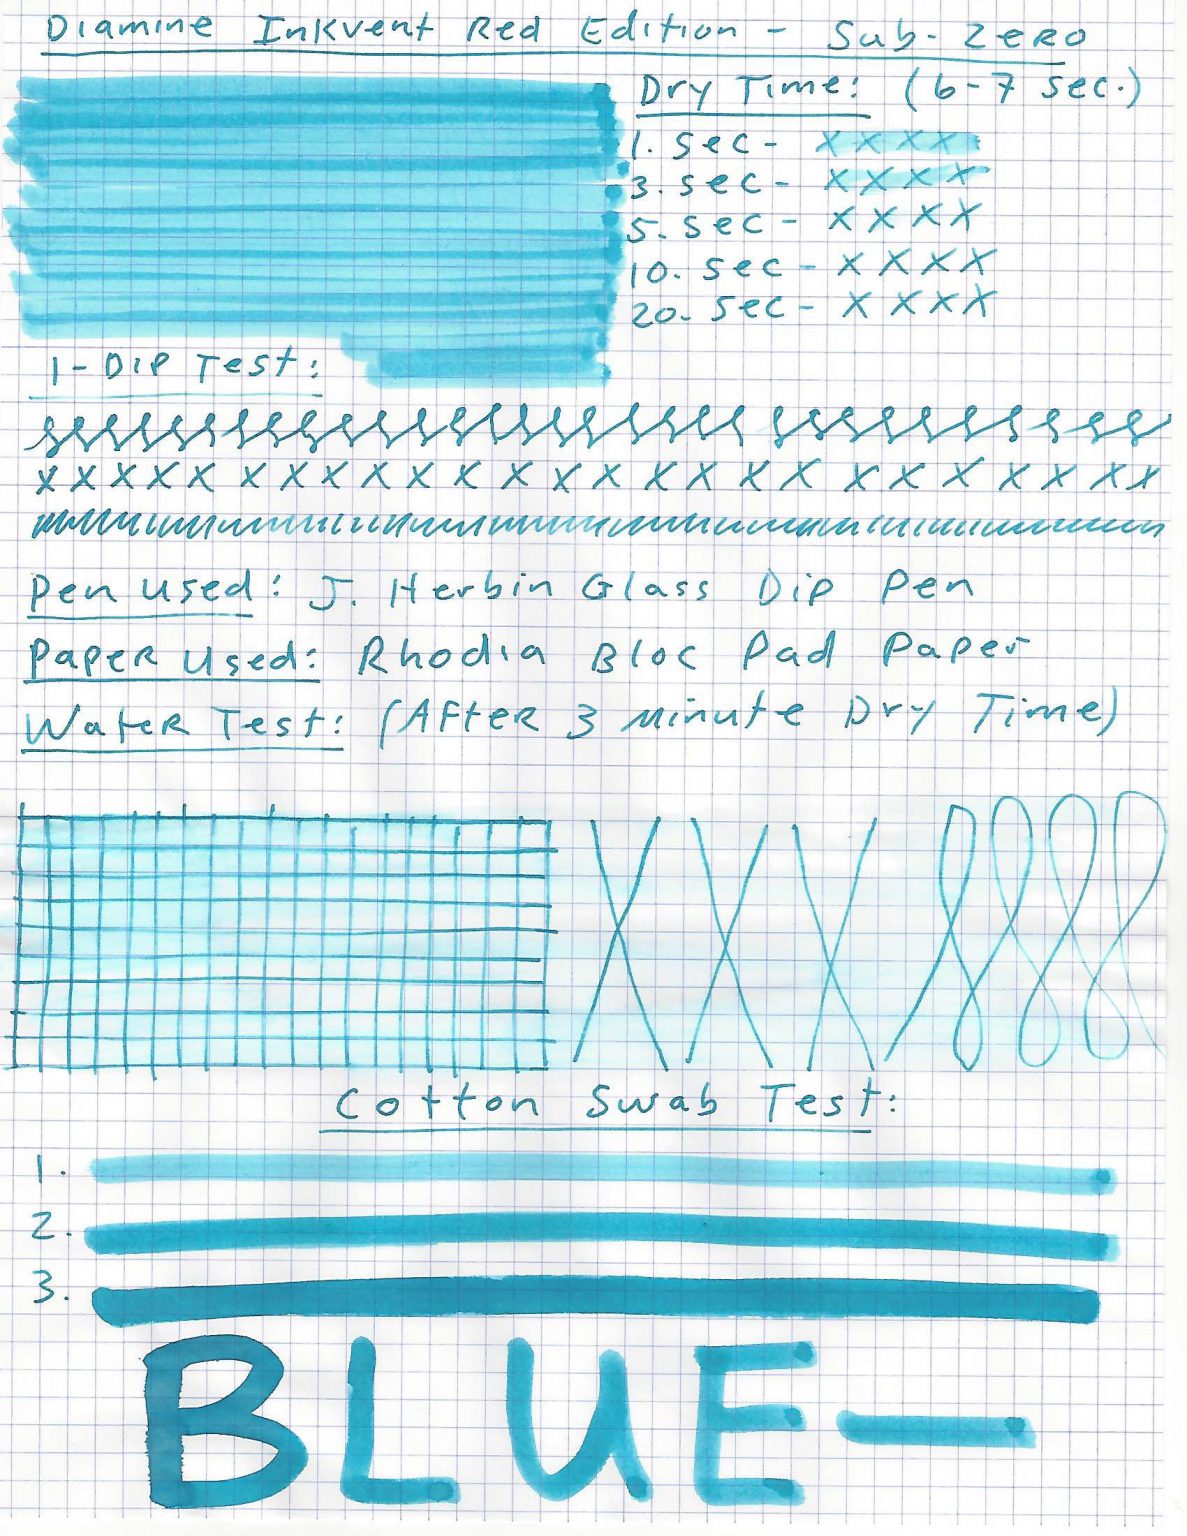 Diamine Inkvent Red Edition - Sub-Zero
Dry Time: (6-7 sec.)
1. sec - x x x x
3. sec - x x x x
5. sec - x x x x
10. sec - x x x x
20. sec - x x x x
1-Dip Test:
x x x x x x x x x x x x x x x x x x x x x x x x x x
Pen Used: J. Herbin Glass Dip Pen
Paper Used: Rhodia Bloc Pad Paper
Water Test: (After 3 minute Dry Time)
Cotton Swab Test:
1.
2.
3.
BLUE—